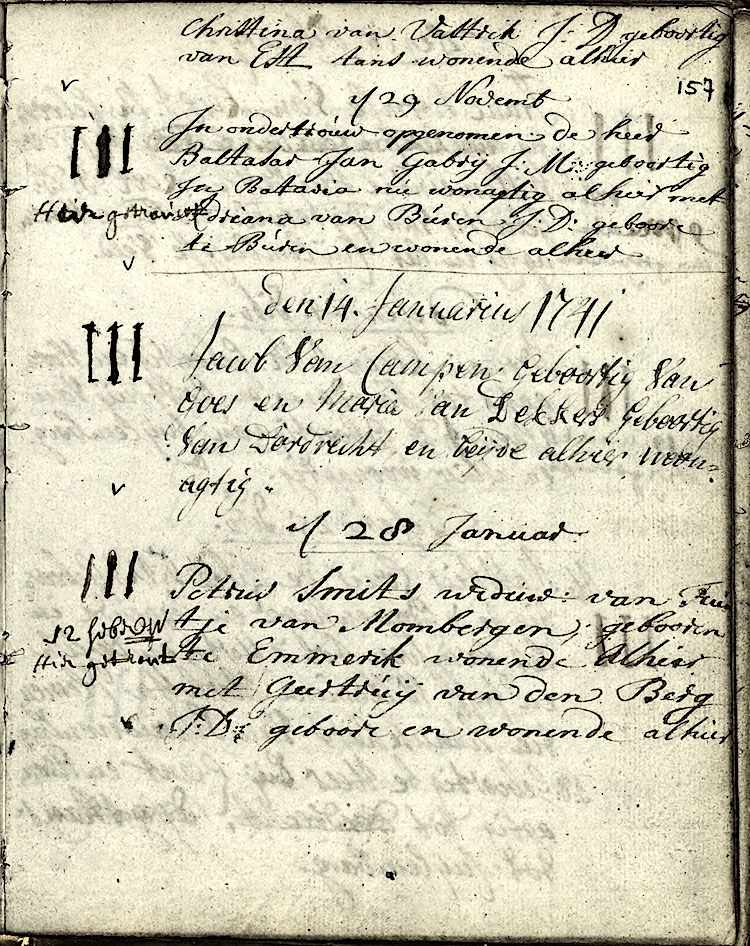 Christina van Vattrik J: D geboortig
van Est tans wonende alhier
157
d 29 Novemb
In ondertrouw opgenomen de heer
Baltasar Jan Gabrij J: M: geboortig
In Batavia nu wonagtig alhier met
Hier getrouwt Adriana van Buren J: D: geboore
te Buren en wonende alhier
den 14. Januarius 1741
Jacob Van Campen Geboortig Van
Goes en Maria Van Dekkers Geboortig
Van Dordrecht en beijde alhier woon-
agtig.
d 28 Januar
Petrus Smits weduw: van
12 febr tje van Mombergen, gebooren
Hier getrouwt te Emmerik wonende alhier
met Geertruij van den Berg
J: D: geboore en wonende alhier